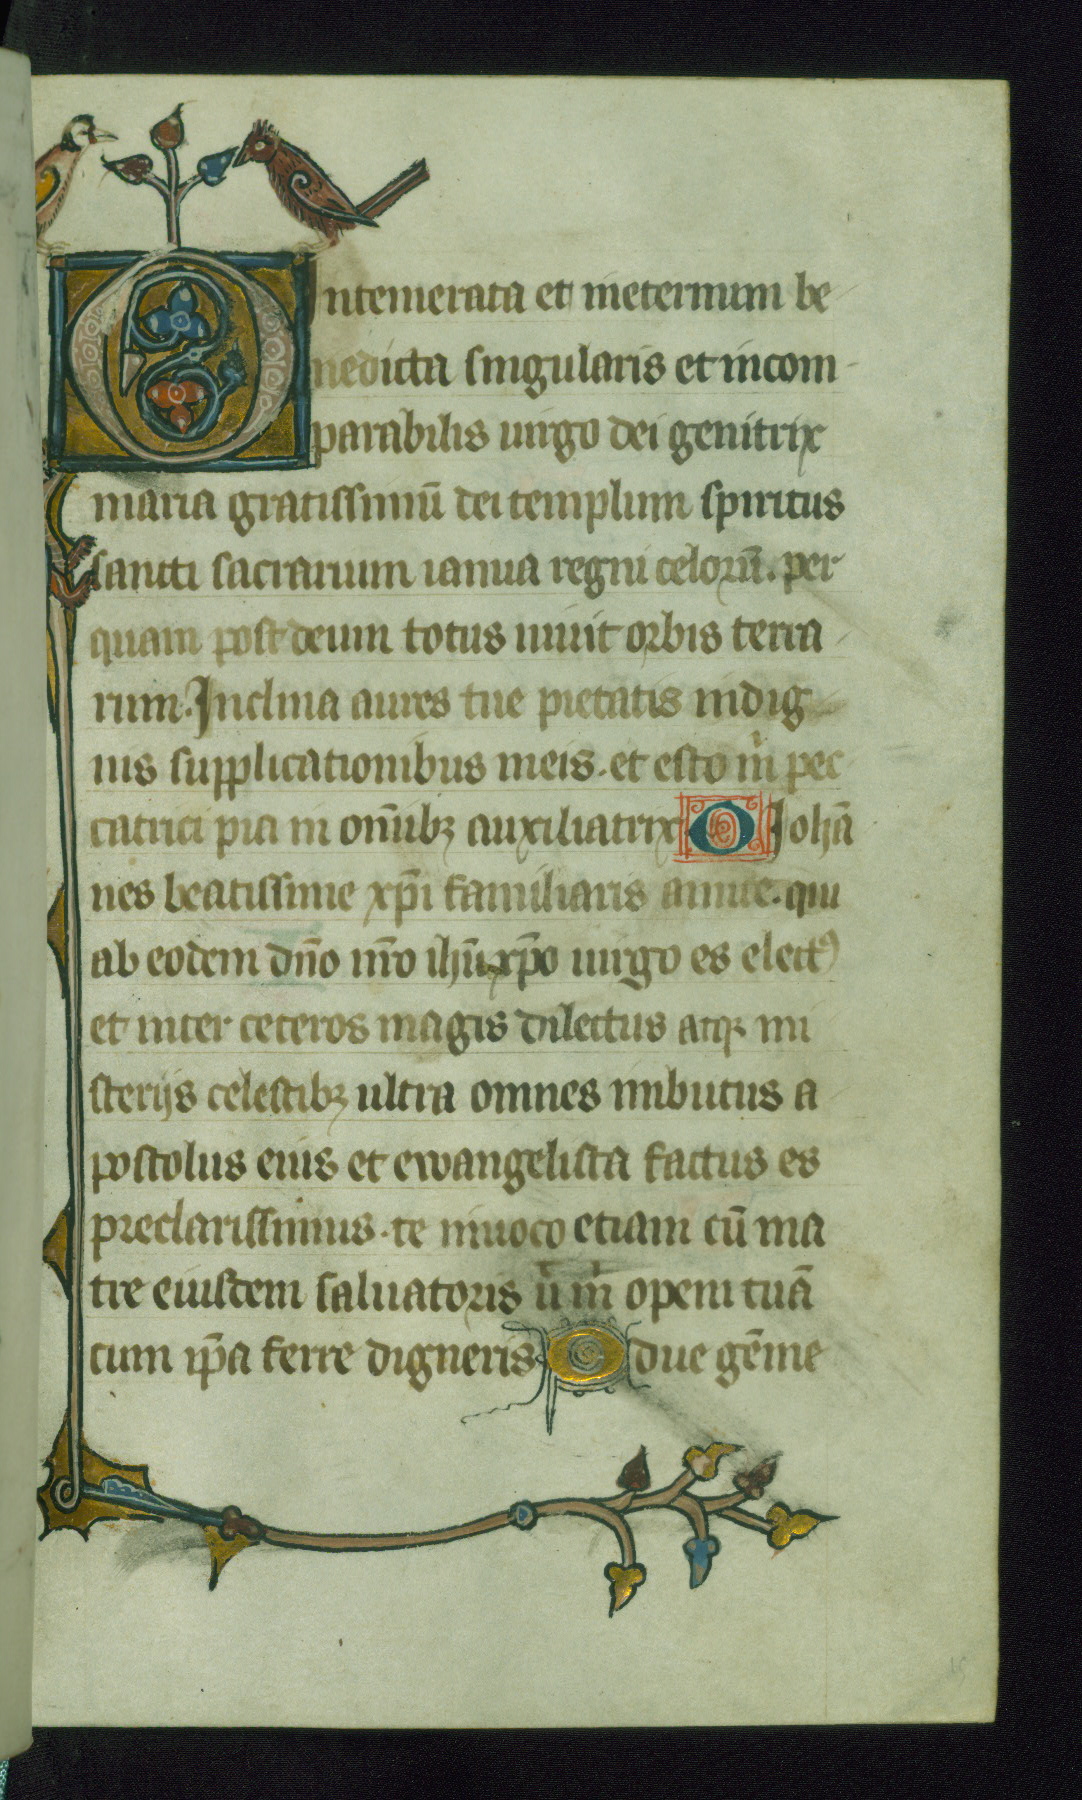 O Intemerata et ineternum be
nedicta singularis et incom
parabilis uirgo dei genitrix
maria gratissimū dei templum spiritus
sancti sacrarium ianua regni celorū. per
quam post deum totus uiuit orbis terra
rum. Inclina aures tue pietatis indig
nis supplicationibus meis. et esto m̄ pec
catrici pia in om̄ibꝫ auxiliatrix. O Johā
nes beatissime xp̄i familiaris amice. qui
ab eodem dn̄o nr̄o ihū xp̄o uirgo es electꝰ
et inter ceteros magis dilectus atqꝫ mi
sterijs celestibꝫ ultra omnes imbutus a
postolus eius et ewangelista factus es
preclarissimus. te inuoco etiam cū ma
tre eiusdem saluatoris ut m̄ openi tuā
cum ip̄a ferre digneris. O due gēme